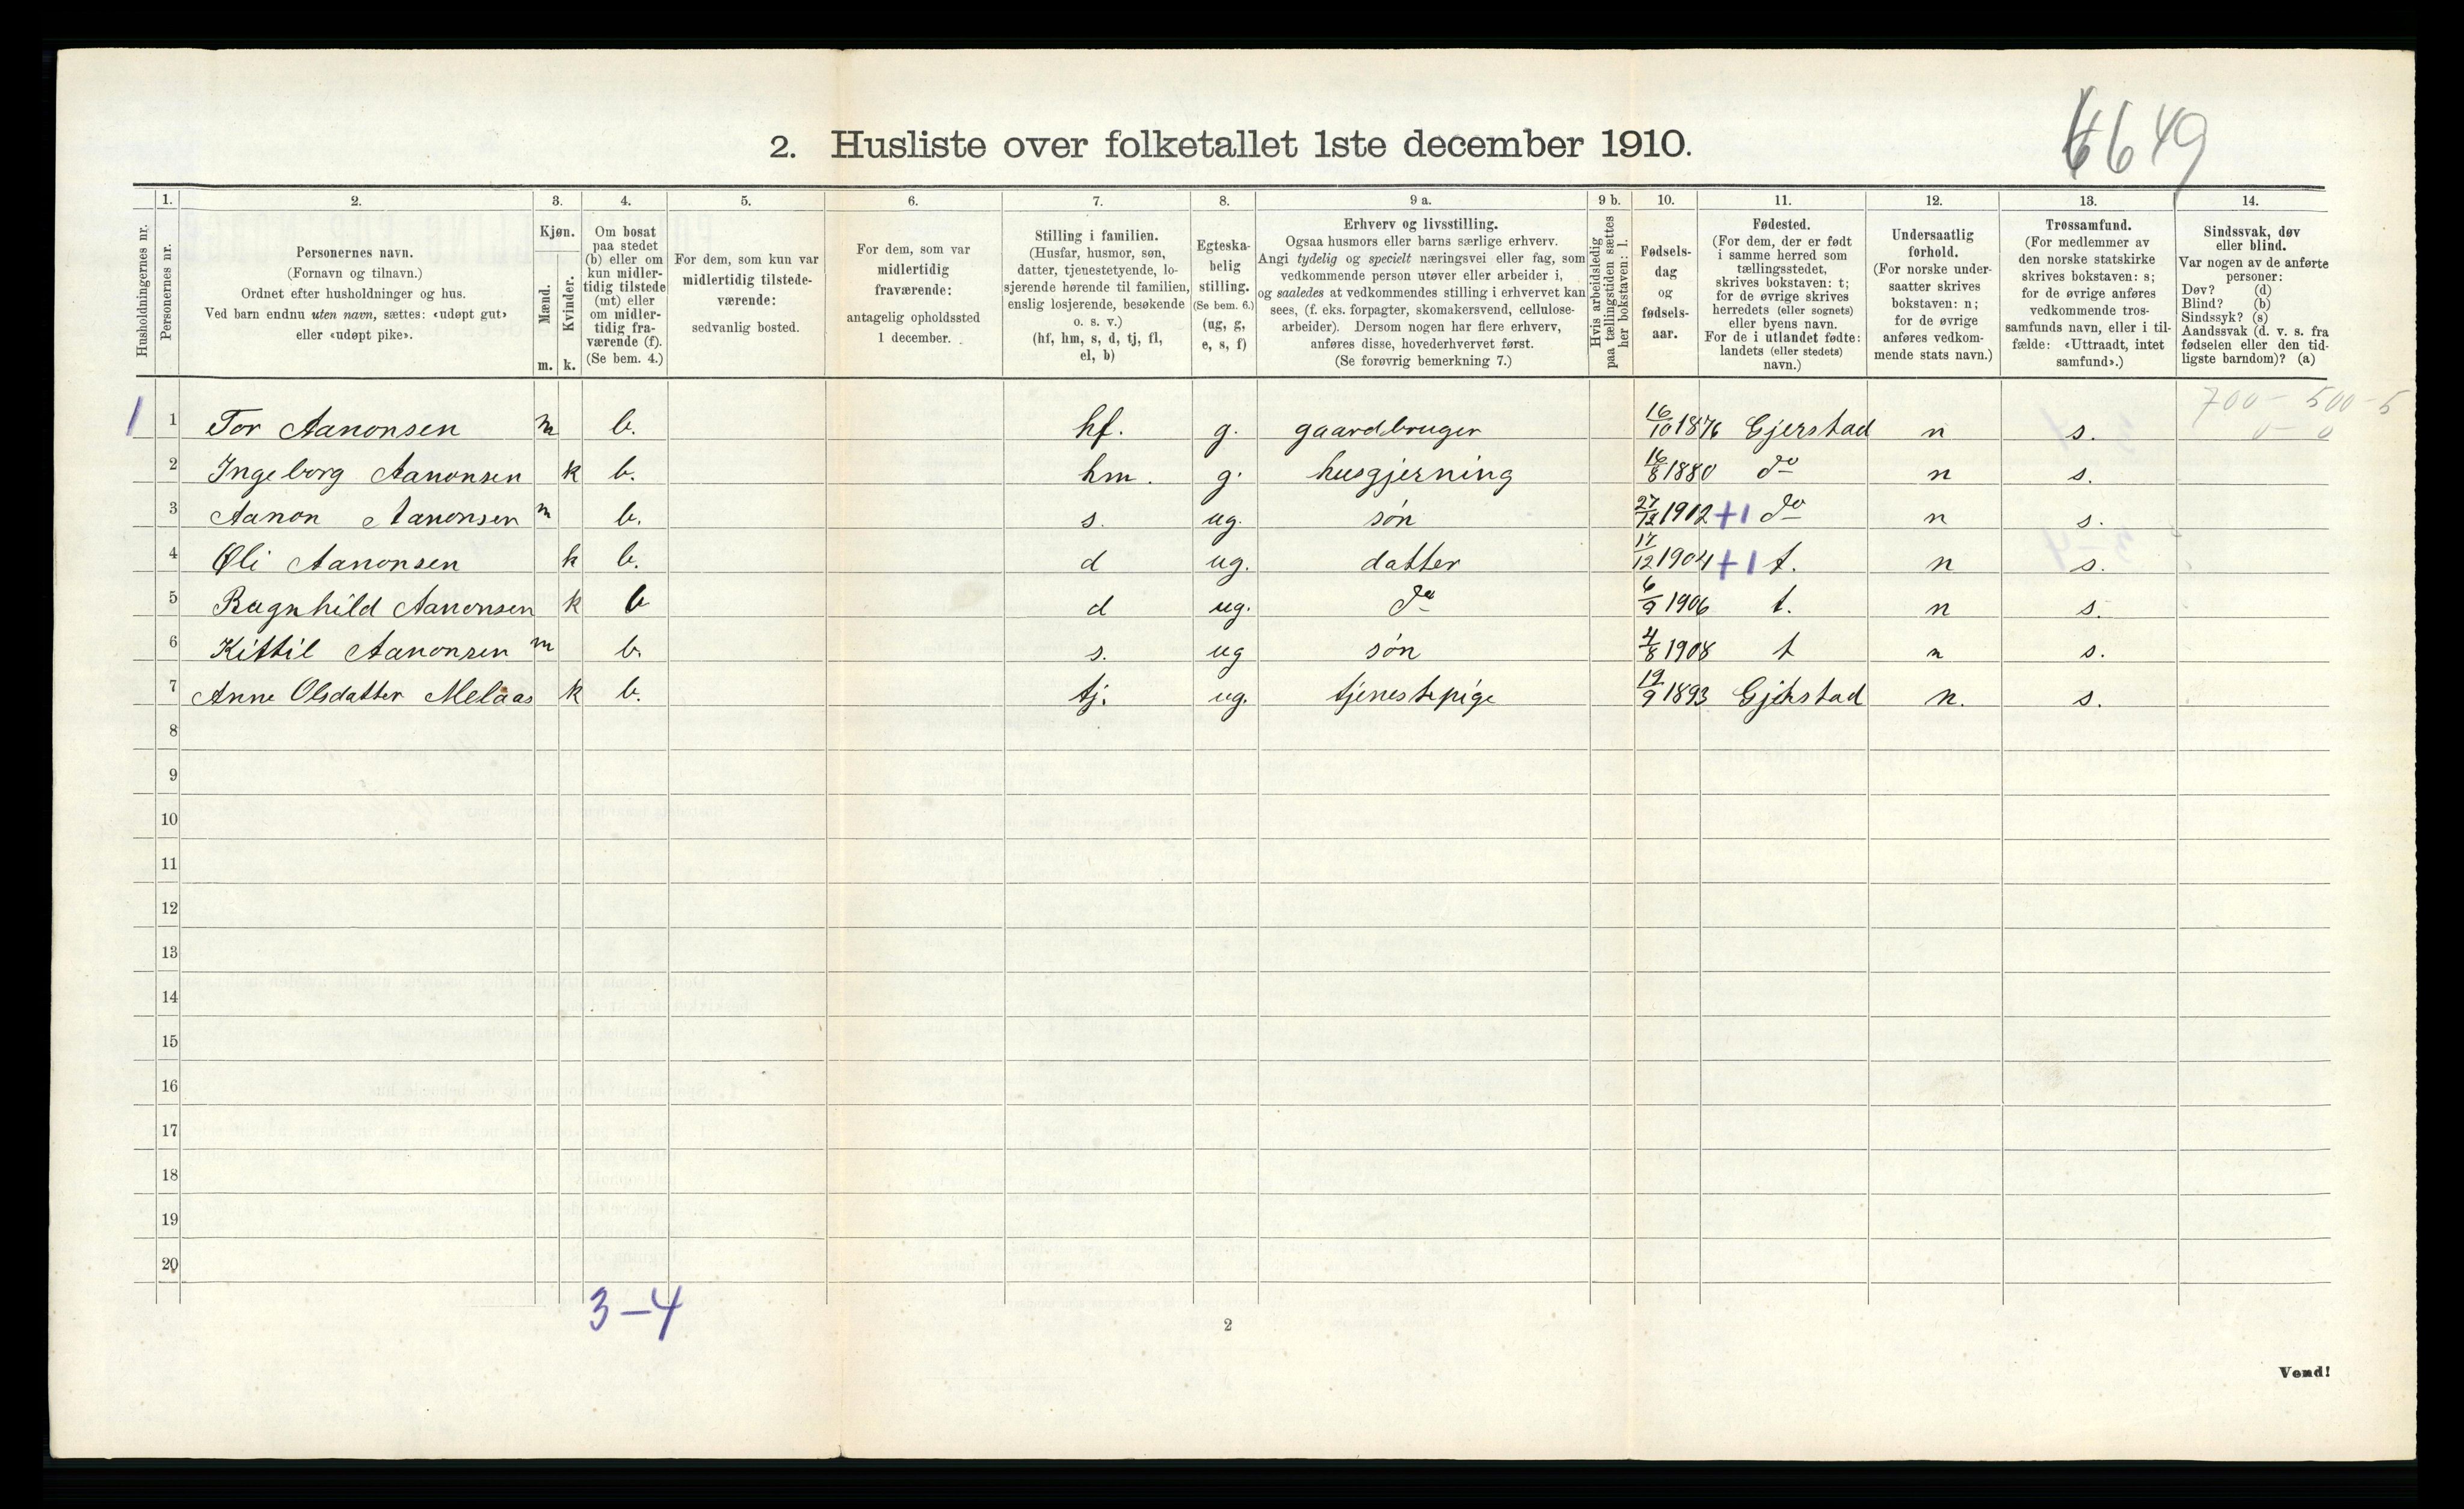 6649
2. Husliste over folketallet 1ste december 1910.
Husholdningernes nr.
1. Personernes nr.
2. Personernes navn.
(Fornavn og tilnavn.)
Ordnet efter husholdninger og hus.
Ved barn endnu uten navn, sættes: «udøpt gut»
eller «udøpt pike».
3. Kjøn.
Mænd. m.
Kvinder. k.
4. Om bosat
paa stedet
(b) eller om
kun midler-
tidig tilstede
(mt) eller
om midler-
tidig fra-
værende (f).
(Se bem. 4.)
5. For dem, som kun var
midlertidig tilstede-
værende:
sedvanlig bosted.
6. For dem, som var
midlertidig
fraværende:
antagelig opholdssted
1 december.
7. Stilling i familien.
(Husfar, husmor, søn,
datter, tjenestetyende, lo-
sjerende hørende til familien,
enslig losjerende, besøkende
o. s. v.)
(hf, hm, s, d, tj, fl,
el, b)
8. Egteska-
belig
stilling.
(Se bem. 6.)
(ug, g,
e, s, f)
9 a. Erhverv og livsstilling.
Ogsaa husmors eller barns særlige erhverv.
Angi tydelig og specielt næringsvei eller fag, som
vedkommende person utøver eller arbeider i,
og saaledes at vedkommendes stilling i erhvervet kan
sees, (f. eks. forpagter, skomakersvend, cellulose-
arbeider). Dersom nogen har flere erhverv,
anføres disse, hovederhvervet først.
(Se forøvrig bemerkning 7.)
9 b. Hvis arbeidsledig
paa tællingstiden sættes
her bokstaven: l.
10. Fødsels-
dag
og
fødsels-
aar.
11. Fødested.
(For dem, der er født
i samme herred som
tællingsstedet,
skrives bokstaven: t;
for de øvrige skrives
herredets (eller sognets)
eller byens navn.
For de i utlandet fødte:
landets (eller stedets)
navn.)
12. Undersaatlig
forhold.
(For norske under-
saatter skrives
bokstaven: n;
for de øvrige
anføres vedkom-
mende stats navn.)
13. Trossamfund.
(For medlemmer av
den norske statskirke
skrives bokstaven: s;
for de øvrige anføres
vedkommende tros-
samfunds navn, eller i til-
fælde: «Uttraadt, intet
samfund».)
14. Sindssvak, døv
eller blind.
Var nogen av de anførte
personer:
Døv? (d)
Blind? (b)
Sindssyk? (s)
Aandssvak (d. v. s. fra
fødselen eller den tid-
ligste barndom)? (a)
700 - 500 - 5
0 - 0
1 1 Tor Aanonsen m b. hf. g. gaardbruger 16/10 1876 Gjerstad n s.
2 Ingeborg Aanonsen k b. hm. g. husgjerning 16/8 1880 do n s.
3 Aanon Aanonsen m b. s. ug. søn 27/12 1902 +1 do n s.
4 Øli Aanonsen k b. d ug. datter 17/12 1904 +1 t. n s.
5 Ragnhild Aanonsen k b d ug. do 6/9 1906 t. n s.
6 Kittil Aanonsen m b. s. ug søn 4/8 1908 t n s.
7 Anne Olsdatter Melaas k b. tj. ug. tjenestepige 19/9 1893 Gjerstad n. s.
8
9
10
11
12
13
14
15
16
17
18
19
20
3-4
2
Vend!